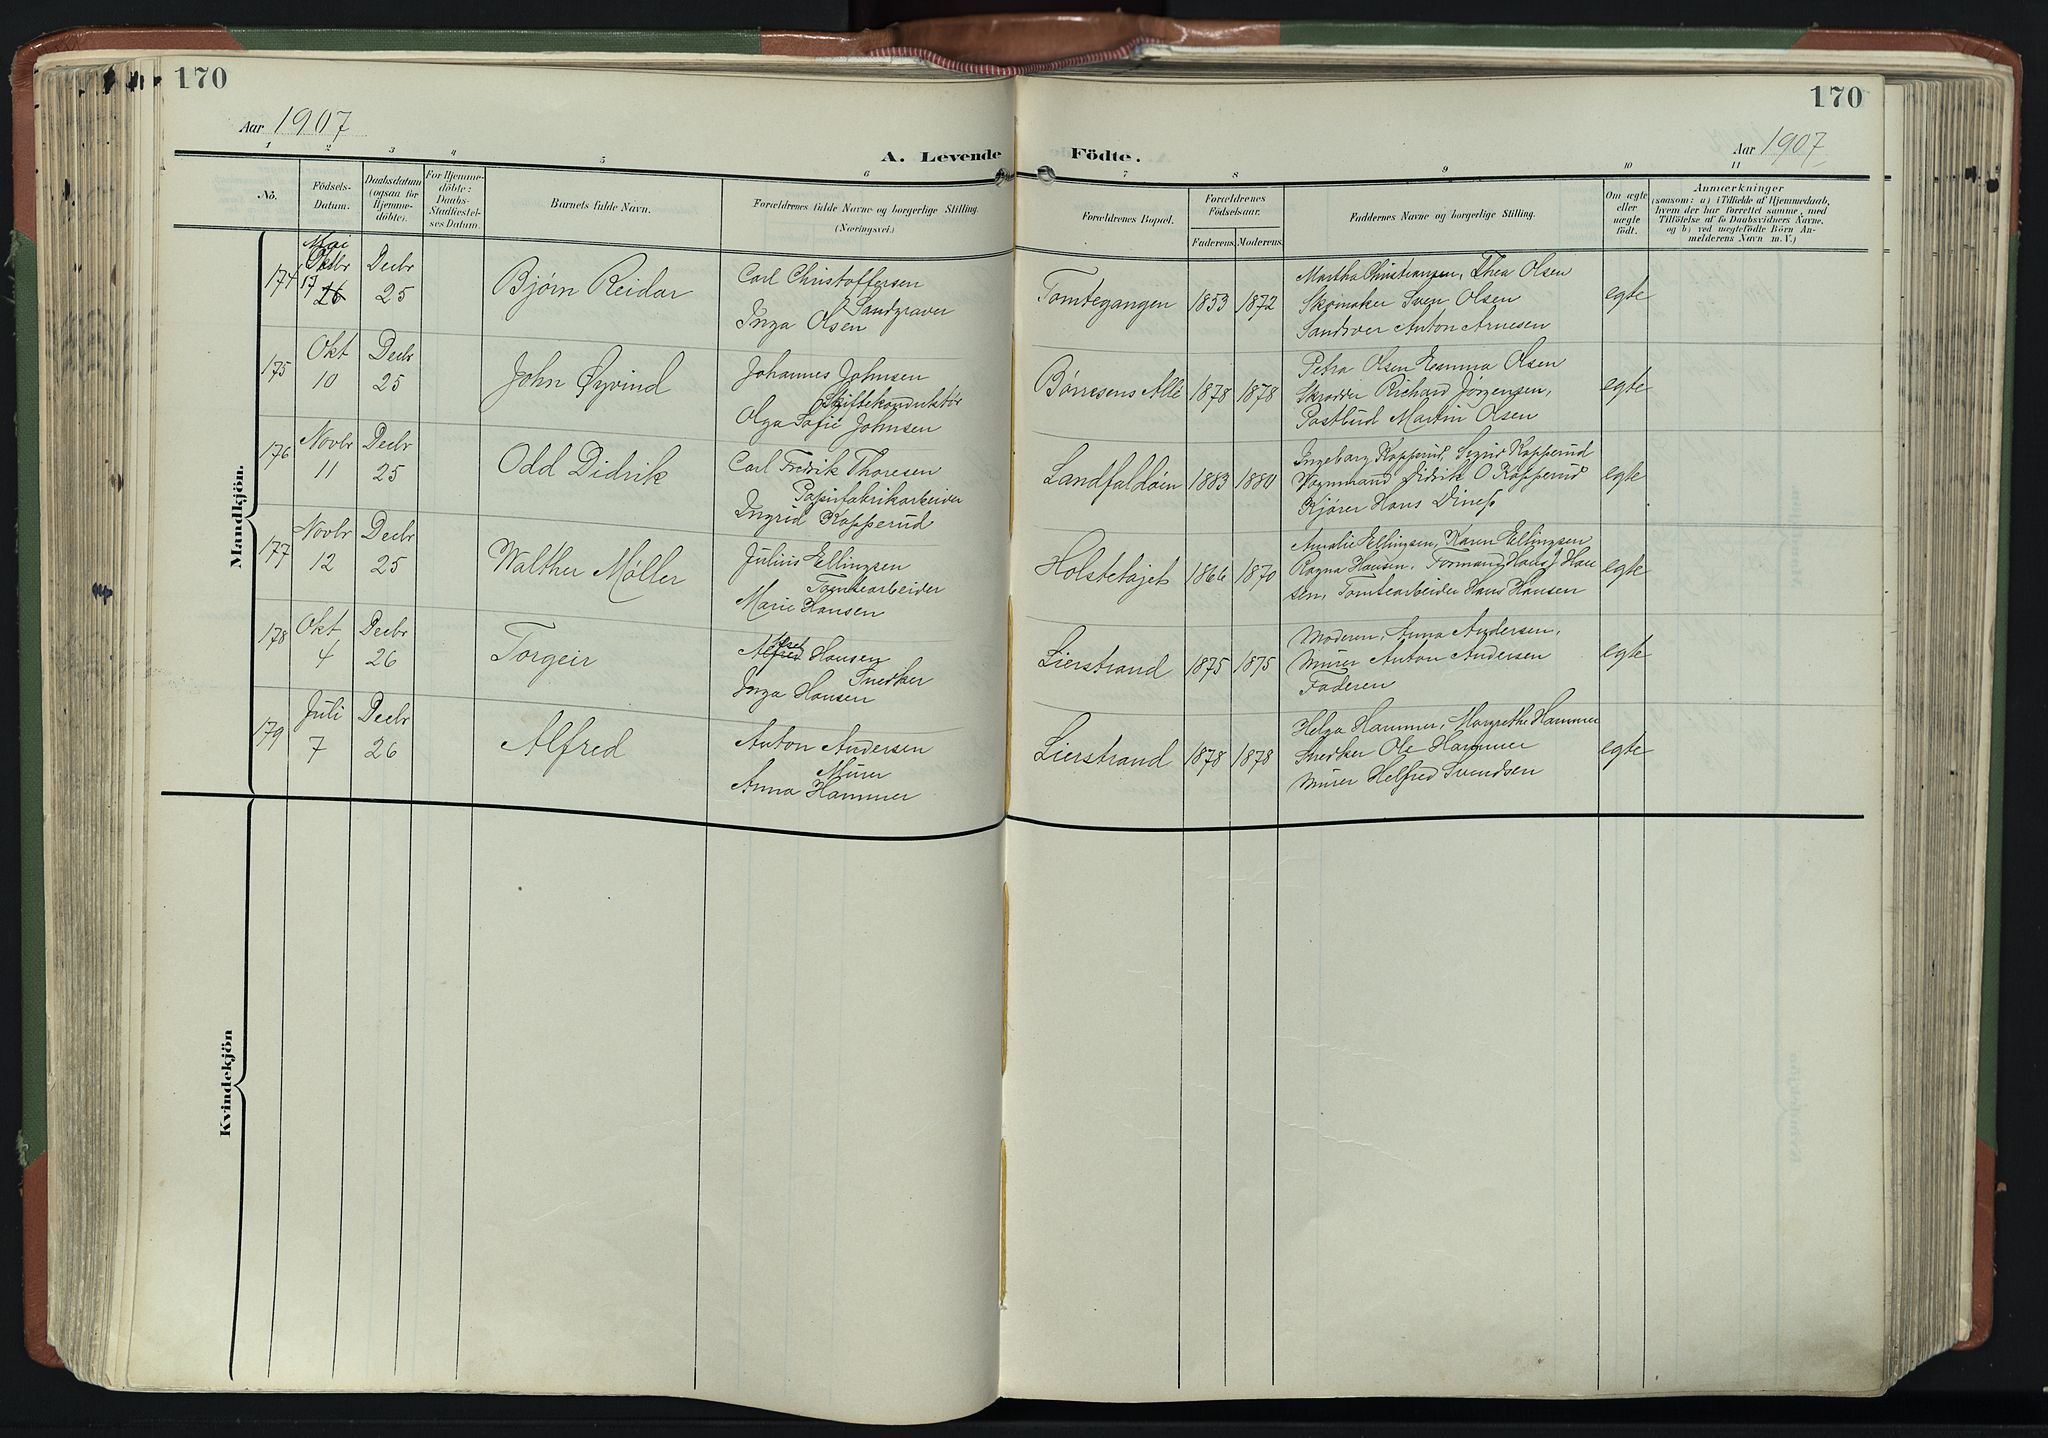 170
170
Aar 1907
Aar 1907
A. Levende Födte.
1 2 3 4 5 6 7 8 9 10 11
No.
Födsels-
Datum.
Daabsdatum
(ogsaa for
Hjemme-
döbte).
For Hjemme-
döbte:
Daabs-
Stadfæstel-
ses Datum.
Barnets fulde Navn.
Forældrenes fulde Navne og borgerlige Stilling.
(Næringsvei.)
Forældrenes Bopæl.
Forældrenes
Födselsaar.
Faderens. Moderens.
Faddernes Navne og borgerlige Stilling.
Om ægte
eller
uægte
født.
Anmærkninger
(saasom: a) i Tilfælde af Hjemmedaab,
hvem der har forrettet samme, med
Tilføielse af to Daabsvidners Navne,
og b) ved uægtefødte Börn An-
melderens Navn m. V.)
Mandkjön.
174
Mai
17 26
Decbr
25
Bjørn Reidar
Carl Christoffersen
Sandgraver
Inga Olsen
Tomtegangen
1853
1872
Martha Christiansen, Thea Olsen
Skomaker Sven Olsen
Anton Arnesen
egte
175
Okt
10
Decbr
25
John Øyvind
Johannes Johnsen
Skiftekonduktør
Olga Sofie Johnsen
Børresens Allé
1878
1878
Petra Olsen Emma Olsen
Skrædder Richard Jørgensen,
Postbud Martin Olsen
egte
176
Novbr
11
Decbr
25
Odd Didrik
Carl Fredrik Thoresen
Papirfabrikarbeider
Ingrid Kopperud
Landfaldøien
1883
1880
Ingeborg Kopperud, Sigrid Kopperud
Vognmand Didrik O Kopperud
Kjører Hans Dines
egte
177
Novbr
12
Decbr
25
Walther Møller
Julius Ellingsen
Tomtearbeider
Marie Hansen
Holstetajet
1866
1870
Amalie Ellingsen, Karen Ellingsen
Ragna Hansen, Formand Hans J Han
sen, Tomtearbeider Hans Hansen
egte
178
Okt
4
Decbr
26
Torgeir
Alfred Hansen
Snedker
Inga Hansen
Lierstrand
1875
1875
Moderen, Anna Andersen,
Murer Anton Andersen
Faderen
egte
179
Juli
7
Decbr
26
Alfred
Anton Andersen
Murer
Anna Hammer
Lierstrand
1878
1878
Helga Hammer, Margrethe Hammer
Snedker Ole Hammer
Murer Helfred Svendsen
egte
Kvindekjön